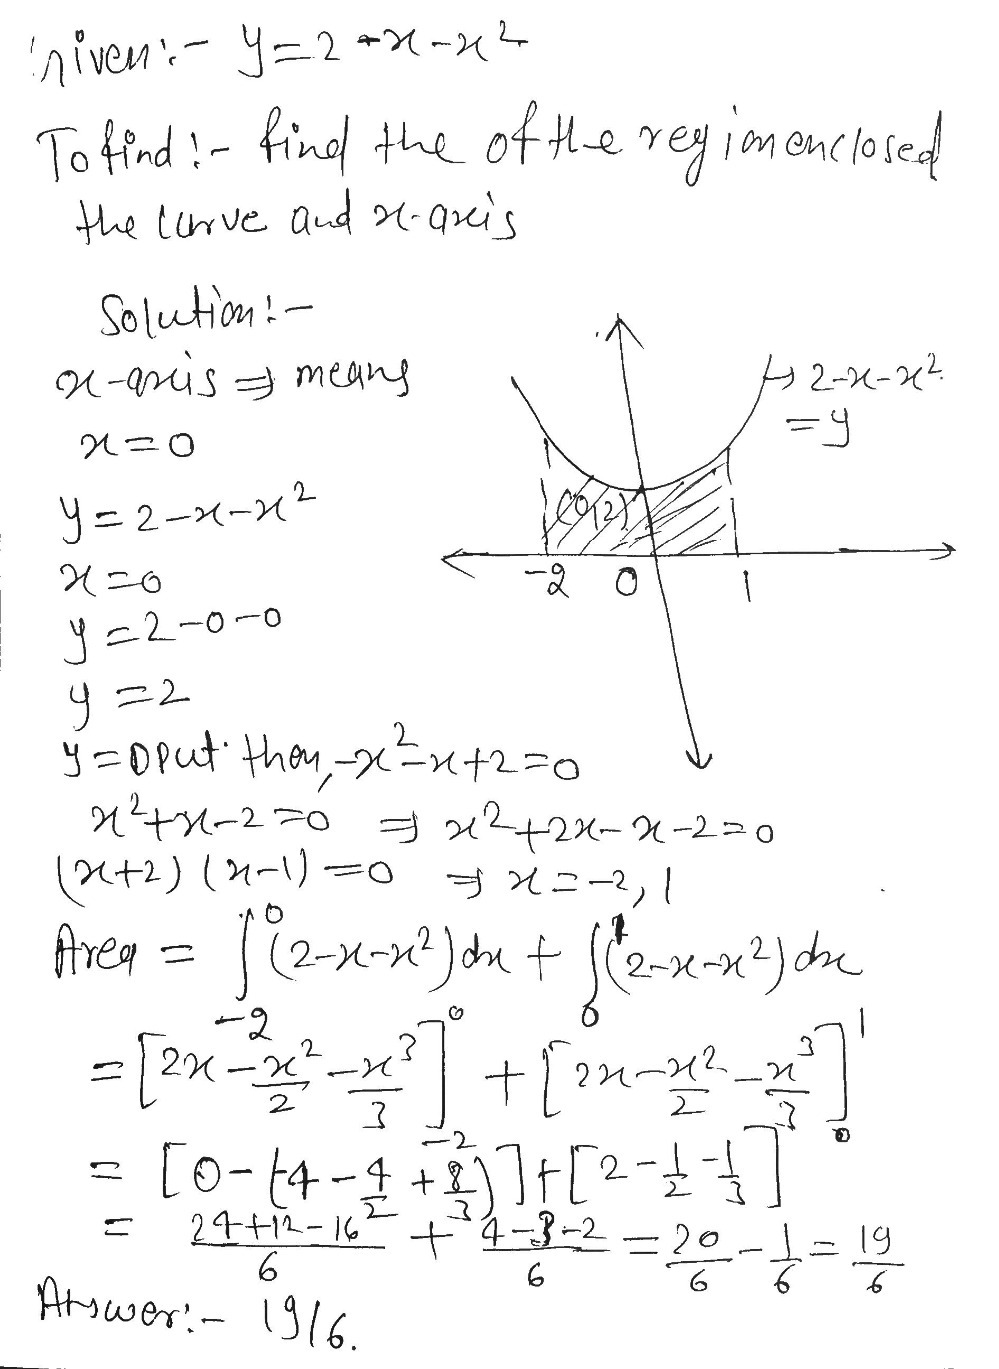 Given:- y=2-x-x²
To find:- find the of the region enclosed
the curve and x-axis
Solution:-
x-axis ⇒ means
x=0
y=2-x-x²
x=0
y=2-0-0
y=2
→ 2-x-x²
=y
(0,2)
-2 0 1
y=0 put then, -x²-x+2=0
x²+x-2=0 ⇒ x²+2x-x-2=0
(x+2)(x-1)=0 ⇒ x=-2, 1
Area = ∫₋₂⁰(2-x-x²)dx + ∫₀¹(2-x-x²)dx
= [2x - x²/2 - x³/3]₋₂⁰ + [2x - x²/2 - x³/3]₀¹
= [0-(-4 - 4/2 + 8/3)] + [2 - 1/2 - 1/3]
= (24+12-16)/6 + (4-3-2)/6 = 20/6 - 1/6 = 19/6
Answer:- 19/6.